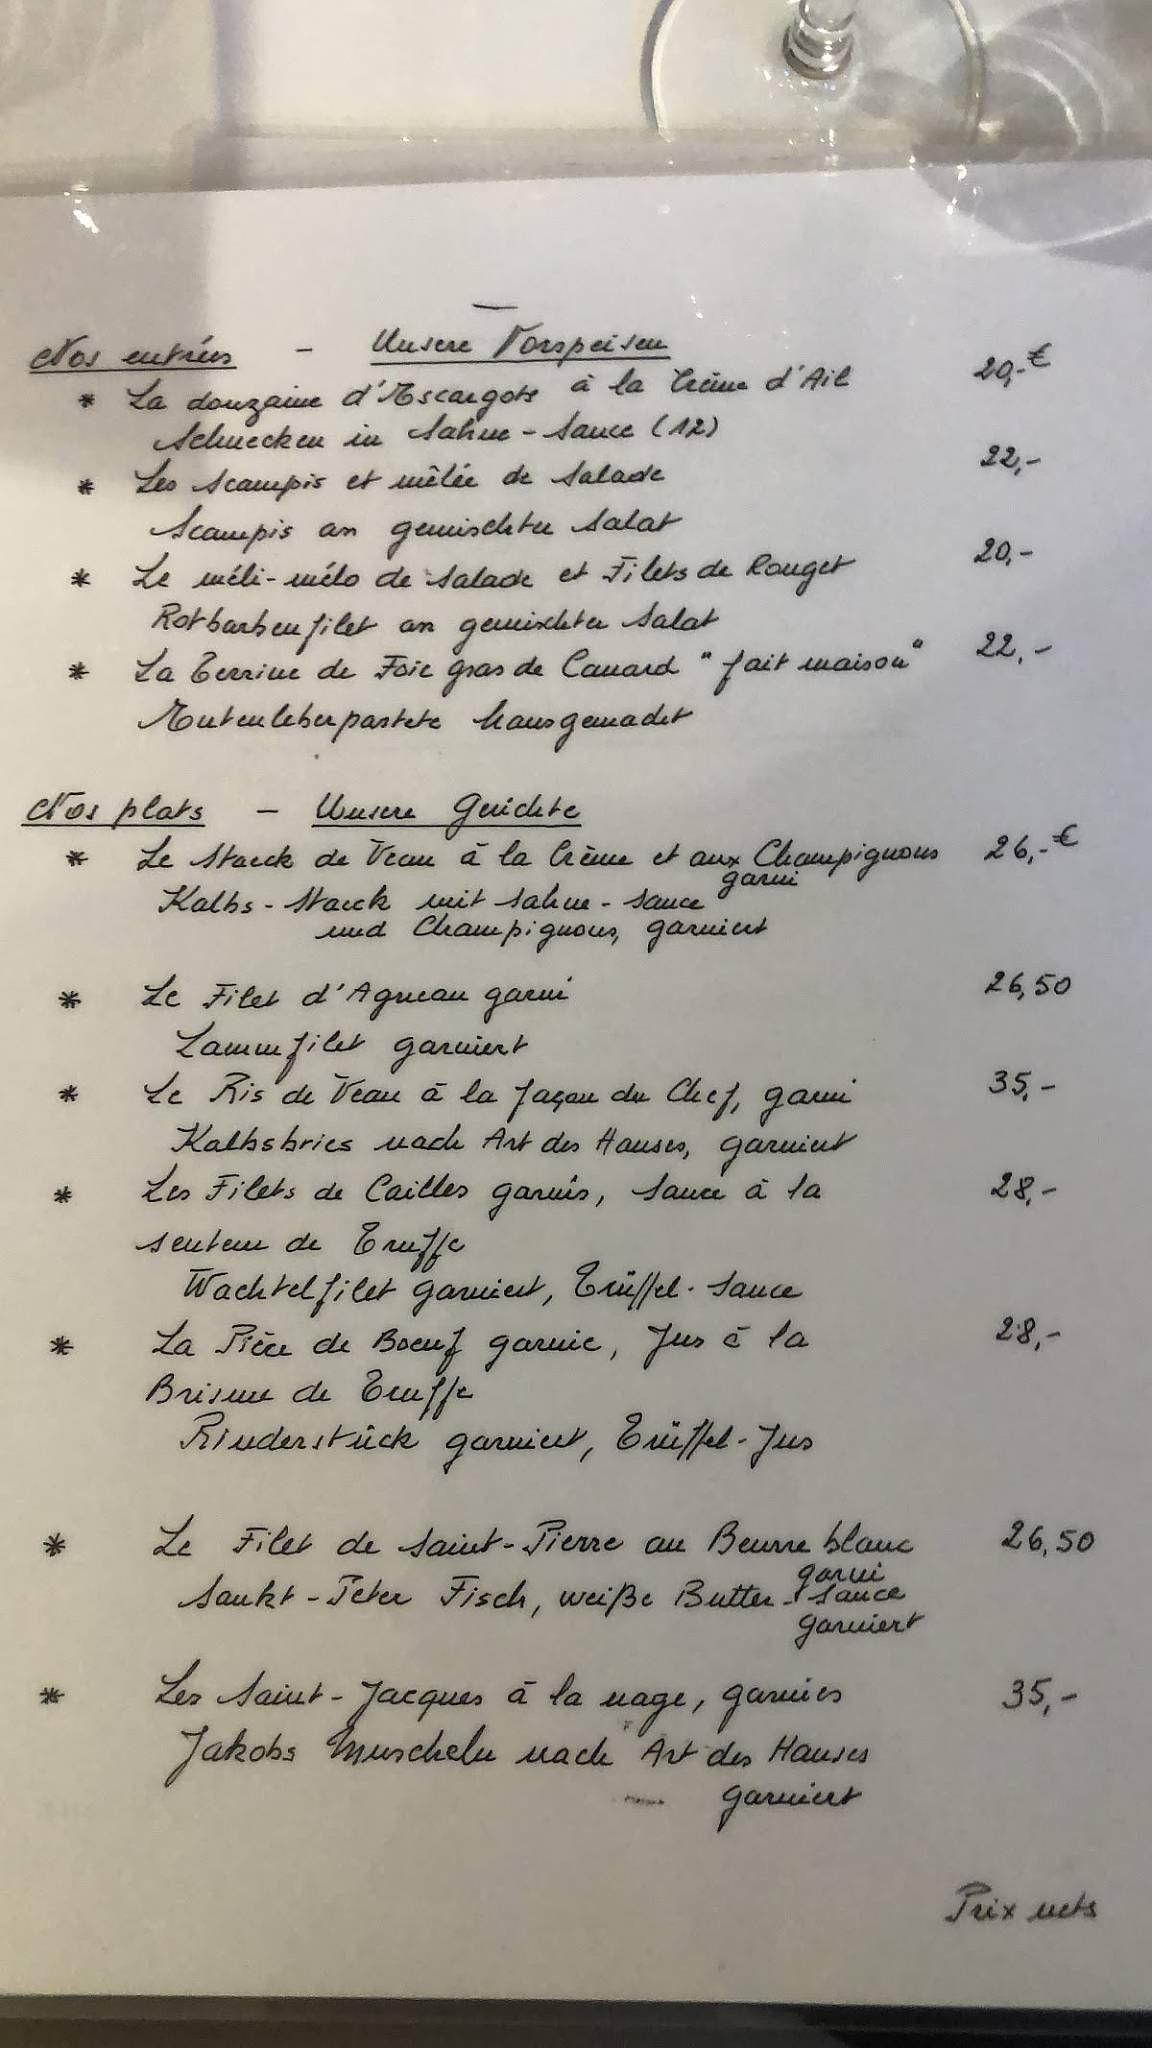 Nos entrées - Unsere Vorspeisen
* La douzaine d'Escargots à la Crème d'Ail 20,-€
Schnecken in Sahne-Sauce (12)
* Les Scampis et mêlée de Salade 22,-
Scampis an gemischter Salat
* Le méli-mélo de Salade et Filets de Rouget 20,-
Rotbarbenfilet an gemischter Salat
* La Terrine de Foie gras de Canard "fait maison" 22,-
Entenleberpastete hausgemacht
Nos plats - Unsere Gerichte
* Le Staeck de Veau à la Crème et aux Champignons 26,-€
garni
Kalbs-Staeck mit Sahne-Sauce
und Champignons, garniert
* Le Filet d'Agneau garni 26,50
Lammfilet garniert
* Le Ris de Veau à la façon du Chef, garni 35,-
Kalbsbries nach Art des Hauses, garniert
* Les Filets de Cailles garnis, Sauce à la 28,-
senteur de Truffe
Wachtelfilet garniert, Trüffel-Sauce
* La Pièce de Boeuf garnie, Jus à la 28,-
Brisure de Truffe
Rinderstück garniert, Trüffel-Jus
* Le Filet de Saint-Pierre au Beurre blanc 26,50
garni
Sankt-Peter Fisch, weiße Butter-Sauce
garniert
* Les Saint-Jacques à la nage, garnies 35,-
Jakobs Muscheln nach Art des Hauses
garniert
Prix nets